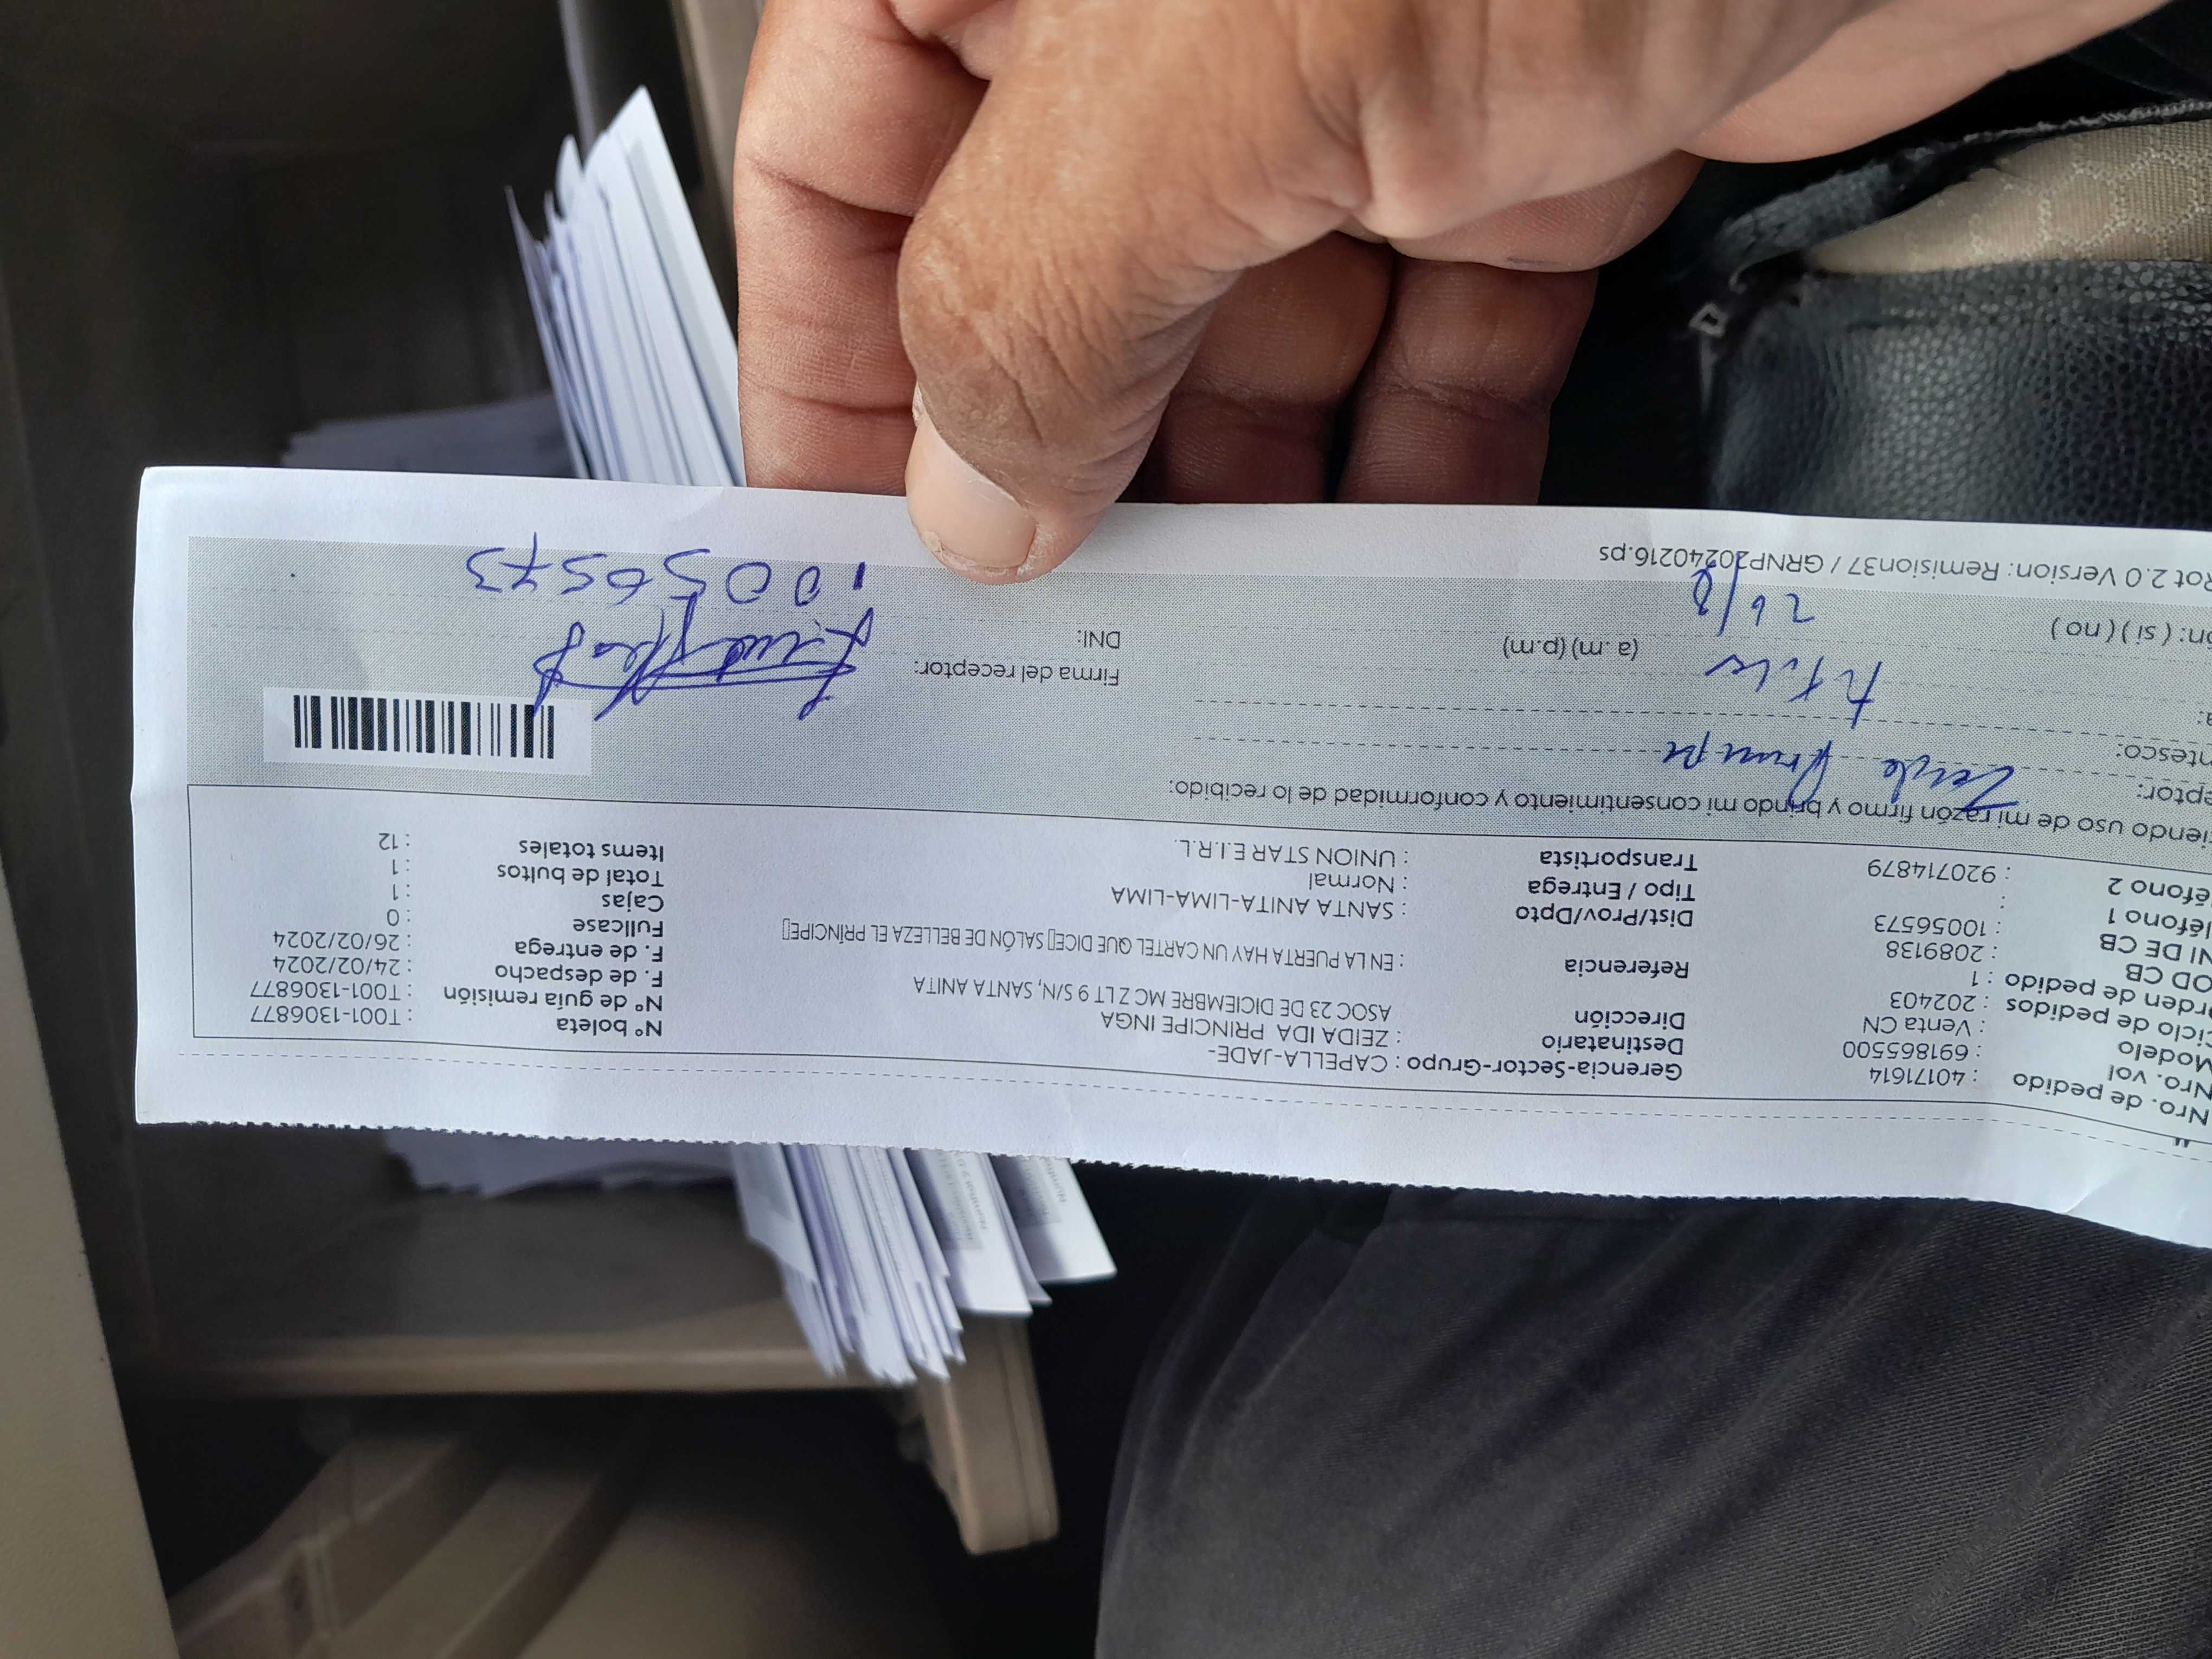 Nro. de pedido : 40171614 Gerencia-Sector-Grupo : CAPELLA-JADE- N° boleta : T001-1306877
Nro. vol : 691865500 Destinatario : ZEIDA IDA PRINCIPE INGA N° de guía remisión : T001-1306877
Modelo : Venta CN Dirección ASOC 23 DE DICIEMBRE MC Z LT 9 S/N, SANTA ANITA F. de despacho : 24/02/2024
iclo de pedidos : 202403 F. de entrega : 26/02/2024
rden de pedido : 1 Referencia : EN LA PUERTA HAY UN CARTEL QUE DICE[] SALÓN DE BELLEZA EL PRÍNCIPE[] Fullcase : 0
OD CB : 2089138 Dist/Prov/Dpto : SANTA ANITA-LIMA-LIMA Cajas : 1
NI DE CB : 10056573 Tipo / Entrega : Normal Total de bultos : 1
léfono 1 : Transportista : UNION STAR E.I.R.L. Items totales : 12
éfono 2 : 920714879
iendo uso de mi razón firmo y brindo mi consentimiento y conformidad de lo recibido:
eptor:
ntesco:
a: Firma del receptor:
(a.m) (p.m) DNI: 10056573
n: ( si ) ( no ) 26/2
Rot 2.0 Version: Remision37 / GRNP20240216.ps